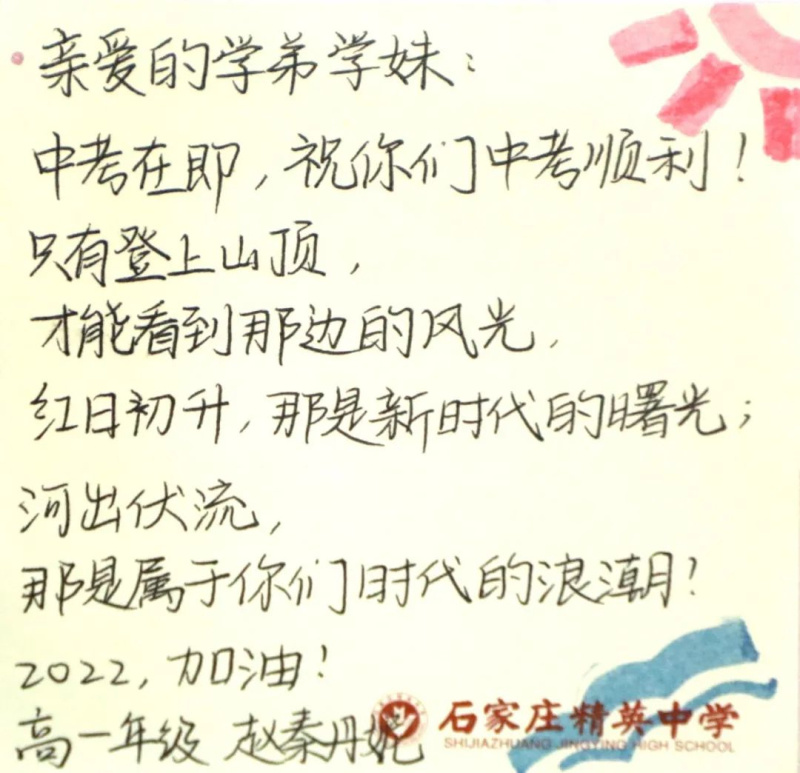 亲爱的学弟学妹：
中考在即，祝你们中考顺利！
只有登上山顶，
才能看到那边的风光．
红日初升，那是新时代的曙光；
河出伏流，
那是属于你们时代的浪潮！
2022，加油！
高一年级 赵秦丹妮
石家庄精英中学
SHIJIAZHUANG JINGYING HIGH SCHOOL